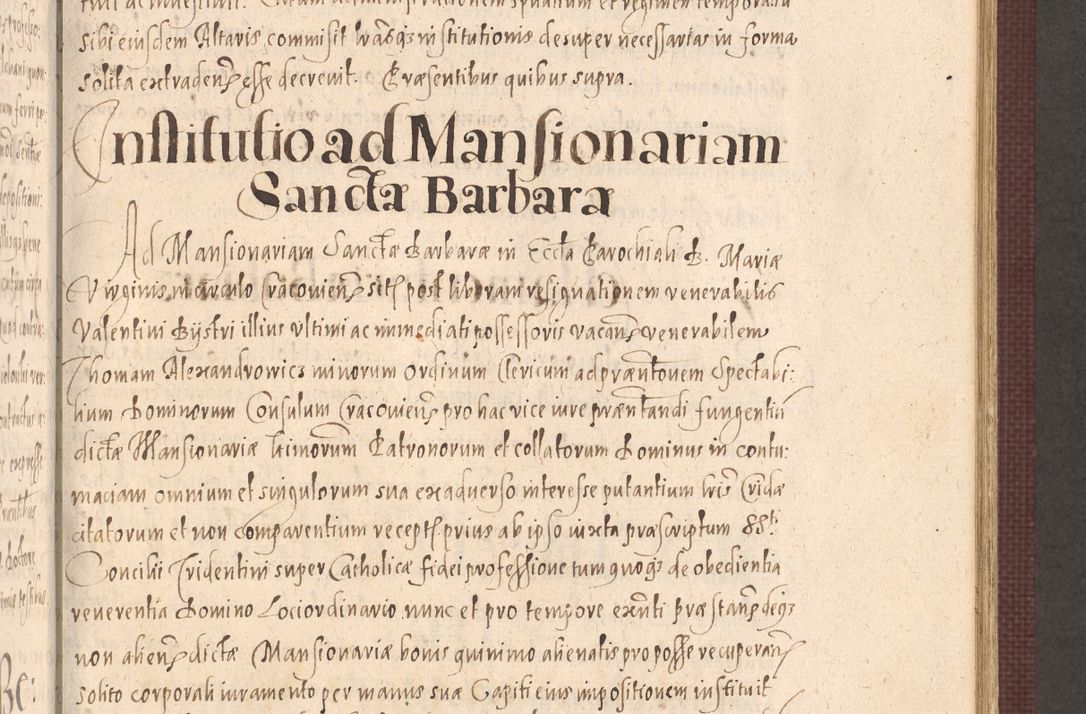 sibi eiusdem Altaris commisit lrãsq3 institutionis desuper necessarias in forma
solita extradenꝫ esse decrevit. Præsentibus quibus supra.
Institutio ad Mansionariam
Sanctæ Barbaræ
Ad Mansionariam Sanctæ Barbaræ in Eccła Parochiali B. Mariæ
Virginis in circulo Cracovienꝫ sitꝫ post liberam resignationem venerabilis
Valentini Bÿstri illius ultimi ac immediati possessoris vacanꝫ venerabilem
Thomam Alexandrowicz minorum ordinum Clericum ad præntõnem Spectabi:
lium Dominorum Consulum Cracovienꝫ pro hac vice iure præntandi fungentiũ
dictæ Mansionariæ Patronorum et collatorum Dominus in contu:
maciam omnium et singulorum sua ex adverso interesse putantium lrīs Cridæ
citatorum et non comparentium receptꝫ prius ab ipso iuxta præscriptum SSti
Concilii Tridentini super Catholicæ fidei professione tum quoq3 de obedientia
reverentia Domino Loci ordinario nunc et pro tempore exñti præstanꝫ deq3
non alienꝫ dictæ Mansionariæ bonis quinimo alienatis pro posse recuperanꝫ
solito corporali iuramento per manus suæ Capiti eius impositionem instituit